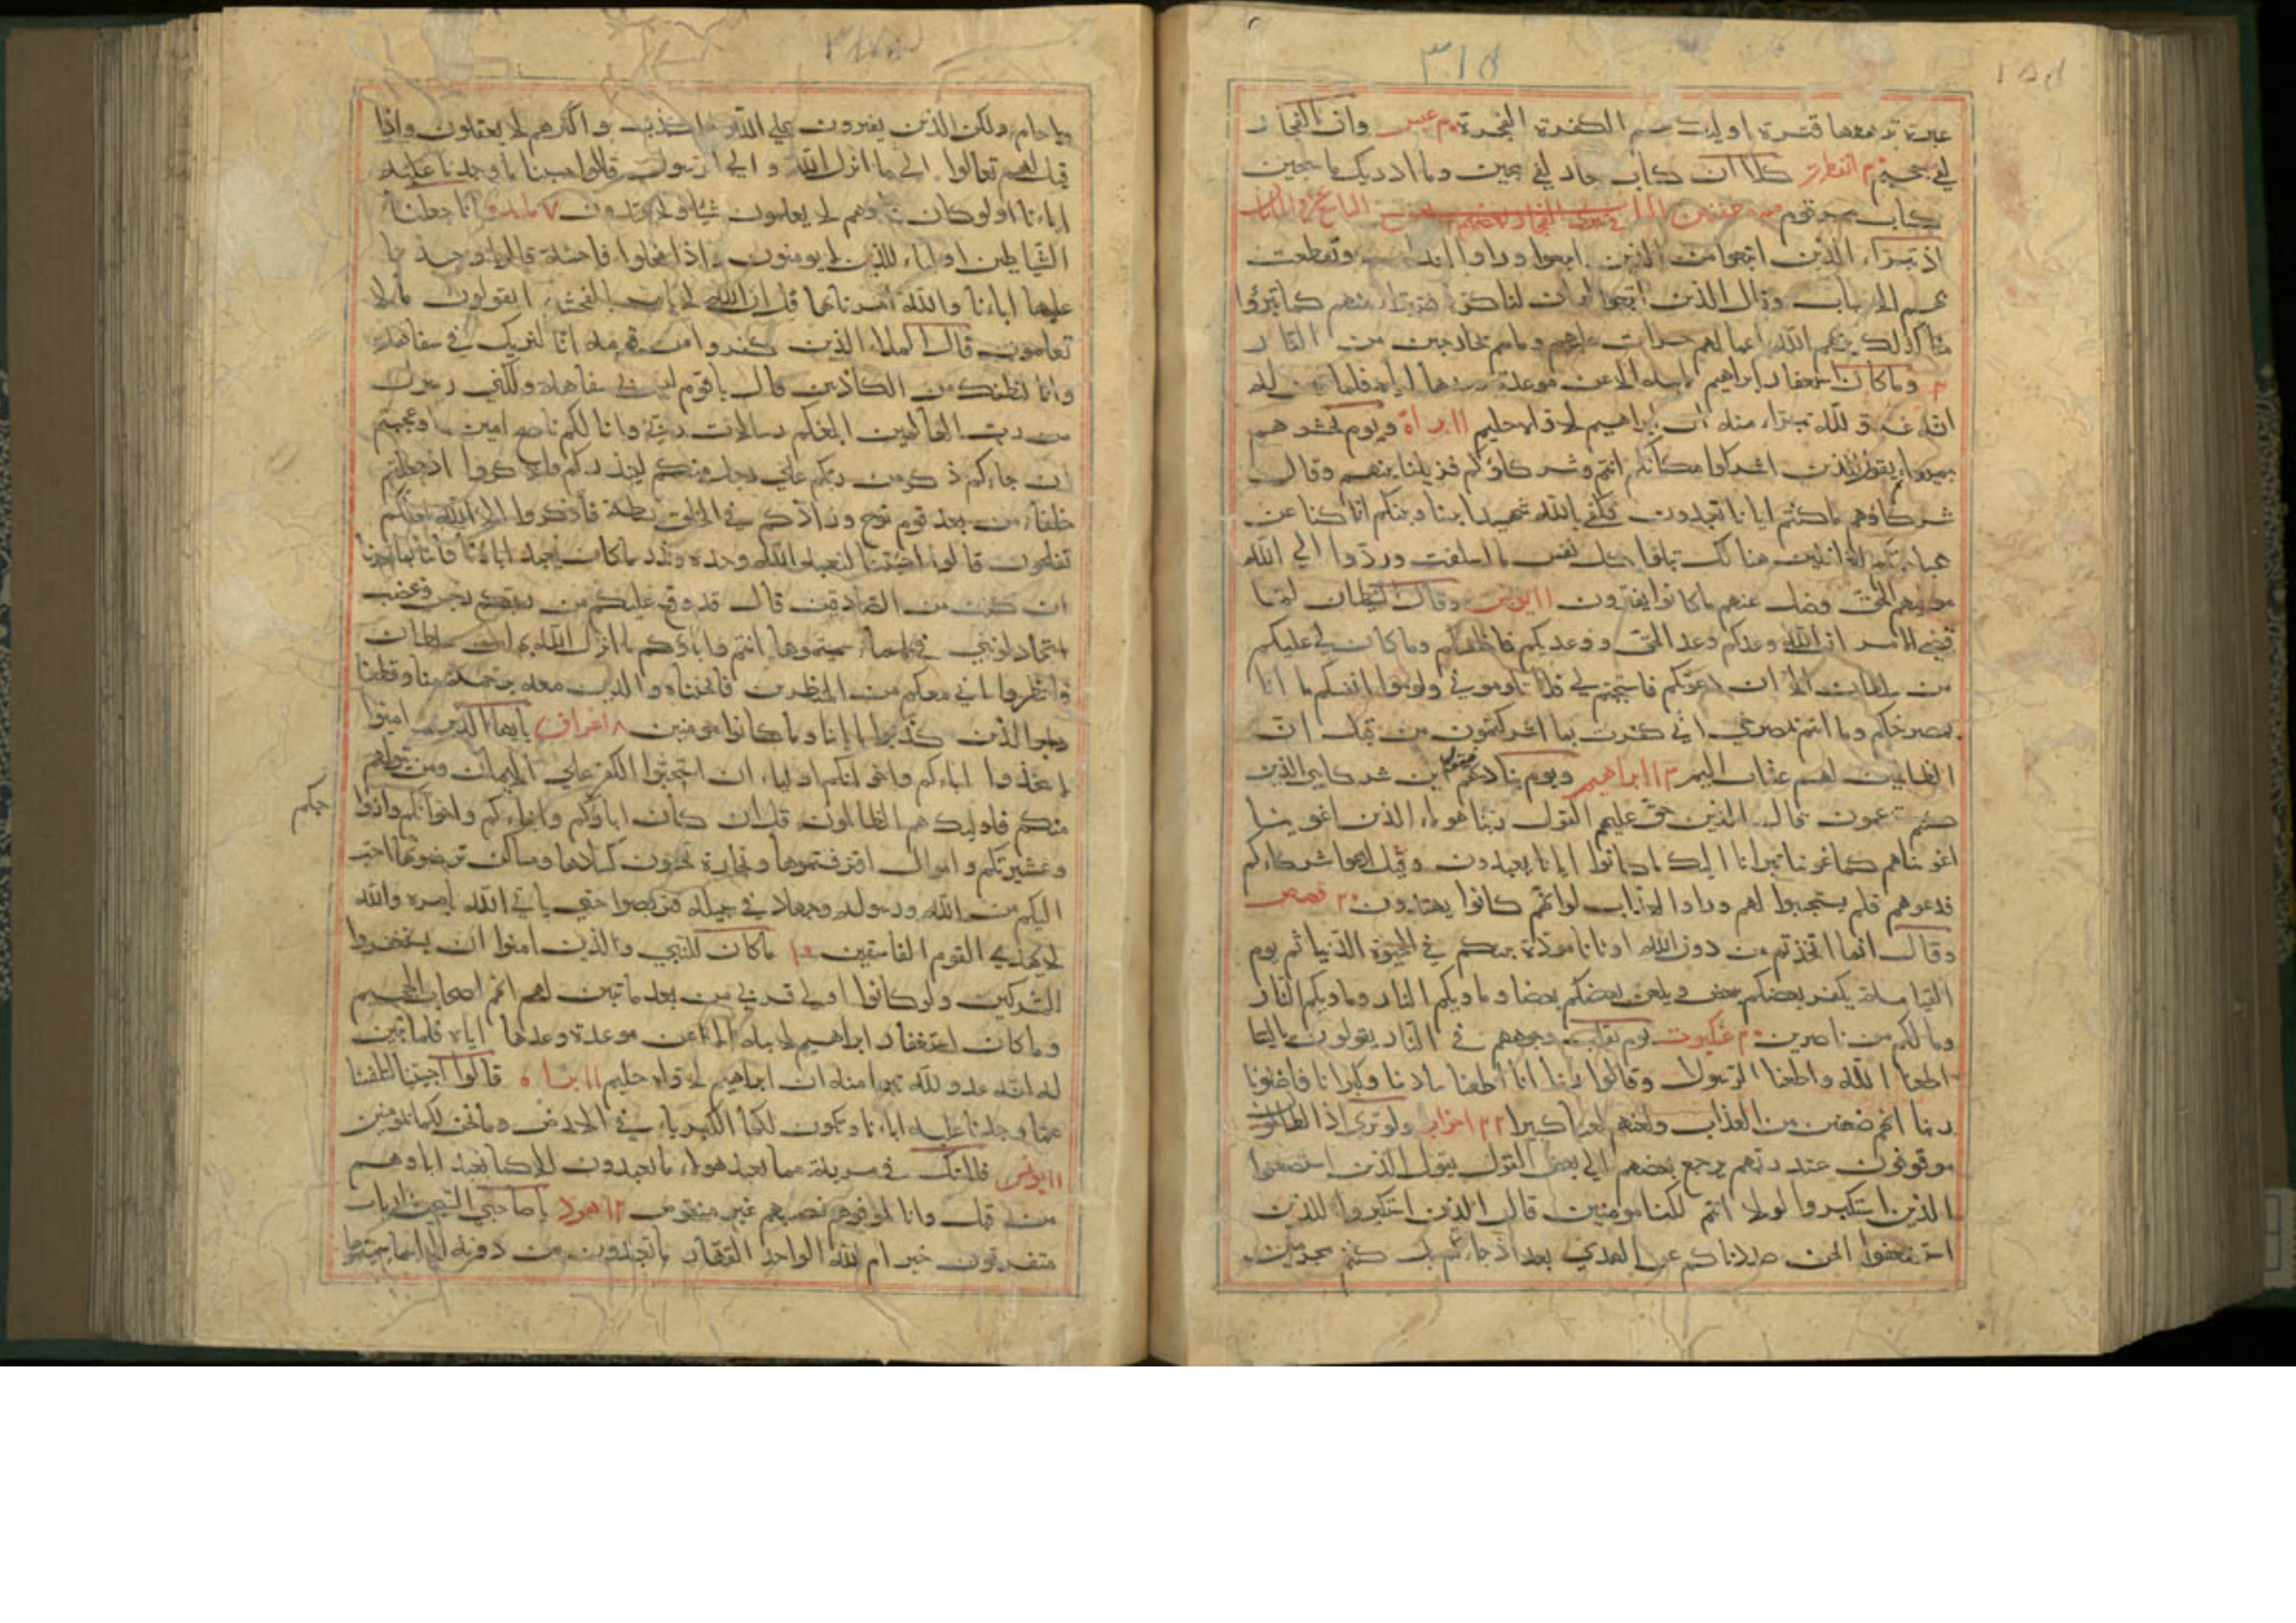 ٣١٥
غبرة ترهقها قترة اوليك هم الكفرة الفجرة عبس وان الفجار
لفي جحيم انفطرت كلا ان كتاب فجار لفي سجين وما ادريك ما سجين
كتاب مرقوم
اذ تبراء الذين اتبعوا من الذين اتبعوا وراوا العذاب وتقطعت
بهم الاسباب وقال الذين اتبعوا لو ان لنا كرة فنتبرا منهم كما تبرؤا
منا كذلك يريهم الله اعمالهم حسرات عليهم وما هم بخارجين من النار
وما كان استغفار ابراهيم لابيه الا عن موعدة وعدها اياه فلما تبين له
انه عدو لله تبراء منه ان ابراهيم لاواه حليم ١١ براة ويوم نحشرهم
جميعا ثم يقول للذين اشركوا مكانكم انتم وشركاؤكم فزيلنا بينهم وقال
شركاؤهم ما كنتم ايانا تعبدون فكفى بالله شهيدا بيننا وبينكم ان كنا عن
عبادتكم لغافلين هنالك تبلوا كل نفس ما اسلفت وردوا الى الله
موليهم الحق وضل عنهم ما كانوا يفترون ١١ يونس وقال الشيطان لما
قضي الامر ان الله وعدكم وعد الحق ووعدتكم فاخلفتكم وما كان لي عليكم
من سلطان الا ان دعوتكم فاستجبتم لي فلا تلوموني ولوموا انفسكم ما انا
بمصرخكم وما انتم بمصرخي اني كفرت بما اشركتمون من قبل ان
الظالمين لهم عذاب اليم ١٣ ابراهيم ويوم يناديهم فيقول اين شركايي الذين
كنتم تزعمون قال الذين حق عليهم القول ربنا هولاء الذين اغوينا
اغويناهم كما غوينا تبرانا اليك ما كانوا ايانا يعبدون وقيل ادعوا شركاءكم
فدعوهم فلم يستجيبوا لهم وراوا العذاب لو انهم كانوا يهتدون ٢٠ قصص
وقال انما اتخذتم من دون الله اوثانا مودة بينكم في الحيوة الدنيا ثم يوم
القيامة يكفر بعضكم ببعض ويلعن بعضكم بعضا وماويكم النار وماويكم النار
وما لكم من ناصرين ٢٠ عنكبوت يوم تقلب وجوههم في النار يقولون يا ليتنا
اطعنا الله واطعنا الرسولا وقالوا ربنا انا اطعنا سادتنا وكبرانا فاضلونا
ربنا اتهم ضعفين من العذاب والعنهم لعنا كبيرا ٢٢ احزاب ولو ترى اذ الظالمون
موقوفون عند ربهم يرجع بعضهم الى بعض القول يقول الذين استضعفوا
الذين استكبروا لولا انتم لكنا مومنين قال الذين استكبروا للذين
استضعفوا انحن صددناكم عن الهدى بعد اذ جاءكم بل كنتم مجرمين
ولا حام ولكن الذين يفترون على الله الكذب واكثرهم لا يعقلون واذا
قيل لهم تعالوا الى ما انزل الله والى الرسول قالوا حسبنا ما وجدنا عليه
اباءنا اولو كان اباؤهم لا يعلمون شيئا ولا يهتدون ٧ مايدة انا جعلنا
الشياطين اولياء للذين لا يومنون واذا فعلوا فاحشة قالوا وجدنا
عليها اباءنا والله امرنا بها قل ان الله لا يامر بالفحشاء اتقولون ما لا
تعلمون قال الملاء الذين كفروا من قومه انا لنريك في سفاهة
وانا لنظنك من الكاذبين قال يا قوم ليس بي سفاهة ولكني رسول
من رب العالمين ابلغكم رسالات ربي وانا لكم ناصح امين اوعجبتم
ان جاءكم ذكر من ربكم على رجل منكم لينذركم واذكروا اذ جعلكم
خلفاء من بعد قوم نوح وزادكم في الخلق بسطة فاذكروا الاء الله لعلكم
تفلحون قالوا اجئتنا لنعبد الله وحده ونذر ما كان يعبد اباؤنا فاتنا بما تعدنا
ان كنت من الصادقين قال قد وقع عليكم من ربكم رجس وغضب
اتجادلونني في اسماء سميتموها انتم واباؤكم ما انزل الله بها من سلطان
فانتظروا اني معكم من المنتظرين فانجيناه والذين معه برحمة منا وقطعنا
دابر الذين كذبوا باياتنا وما كانوا مومنين ٨ اعراف يا ايها الذين امنوا
لا تتخذوا اباءكم واخوانكم اولياء ان استحبوا الكفر على الايمان ومن يتولهم
منكم فاوليك هم الظالمون قل ان كان اباؤكم وابناءكم واخوانكم وازوا
جكم
وعشيرتكم واموال اقترفتموها وتجارة تخشون كسادها ومساكن ترضونها احب
اليكم من الله ورسوله وجهاد في سبيله فتربصوا حتى ياتي الله بامره والله
لا يهدي القوم الفاسقين ١٠ ما كان للنبي والذين امنوا ان يستغفروا
للمشركين ولو كانوا اولي قربى من بعد ما تبين لهم انهم اصحاب الجحيم
وما كان استغفار ابراهيم لابيه الا عن موعدة وعدها اياه فلما تبين
له انه عدو لله تبرا منه ان ابراهيم لاواه حليم ١١ براة قالوا اجئتنا لتلفتنا
عما وجدنا عليه اباءنا وتكون لكما الكبرياء في الارض وما نحن لكما بمومنين
١١ يونس فلا تك في مرية مما يعبد هولاء ما يعبدون الا كما يعبد اباوهم
من قبل وانا لموفوهم نصيبهم غير منقوص ١٢ هود يا صاحبي السجن ارباب
متفرقون خير ام الله الواحد القهار ما تعبدون من دونه الا اسماء سميتموها